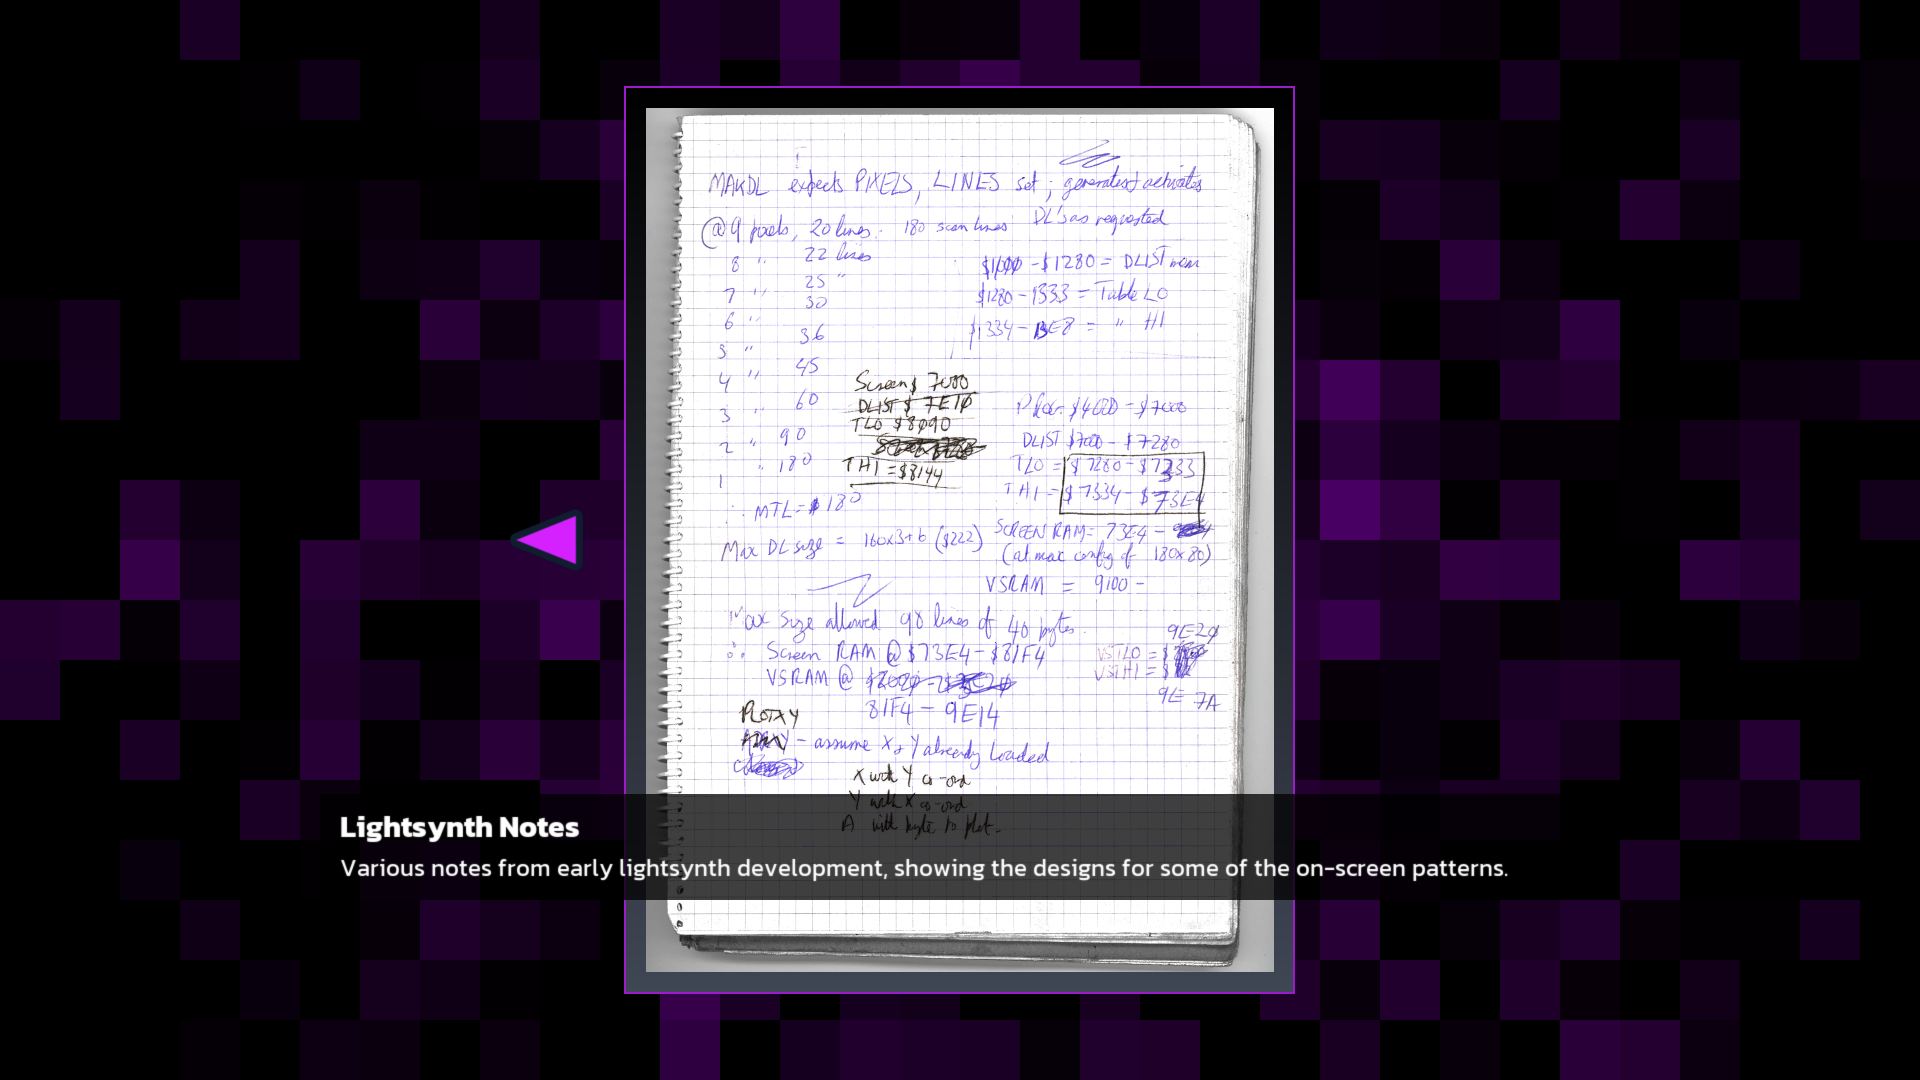 MAKDL expects PIXELS, LINES set; generates+activates
DL's as requested
@ 9 pixels, 20 lines. 180 scan lines
8 " 22 lines
7 " 25 "
6 " 30
5 " 36
4 " 45
3 " 60
2 " 90
1 " 180
∴ MTL = $180
Max DL size = 160x3+6 ($222)
- $1280 = DLIST mem
$1280 - 1333 = Table LO
$1334 - = " HI
Screen $ 7000
DLIST $ 7E10
TLO $8090
THI = $8144
$4000 - $7000
DLIST $7000 - $7280
TLO = $7280 - $7333
THI = $7334 - $73E4
SCREEN RAM = 73E4 -
(at max config of 180x80)
VSRAM = 9100 -
Max Size allowed 90 lines of 40 bytes.
∴ Screen RAM @ $73E4 - $81F4
VSRAM @
81F4 - 9E14
9E20
VSTLO = $
VSTHI = $
9E 7A
PLOTXY
- assume X & Y already loaded
X with Y co-ord
Y with X co-ord
A with byte to plot.
Lightsynth Notes
Various notes from early lightsynth development, showing the designs for some of the on-screen patterns.